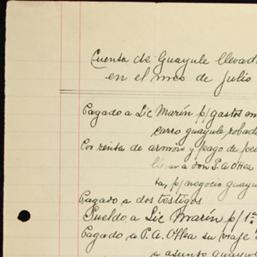 Cuenta de Guayule llevad
en el mes de Julio
Pagado a Lic Marín p/gastos
carro guayule robad
Por renta de armón y pago de
llevar a don
ta, p/negocio guayu
Pagado a dos testigos
Sueldo a Lic Marín p/1a
Pagado a P.A. Offea su viaje
a asunto guayu